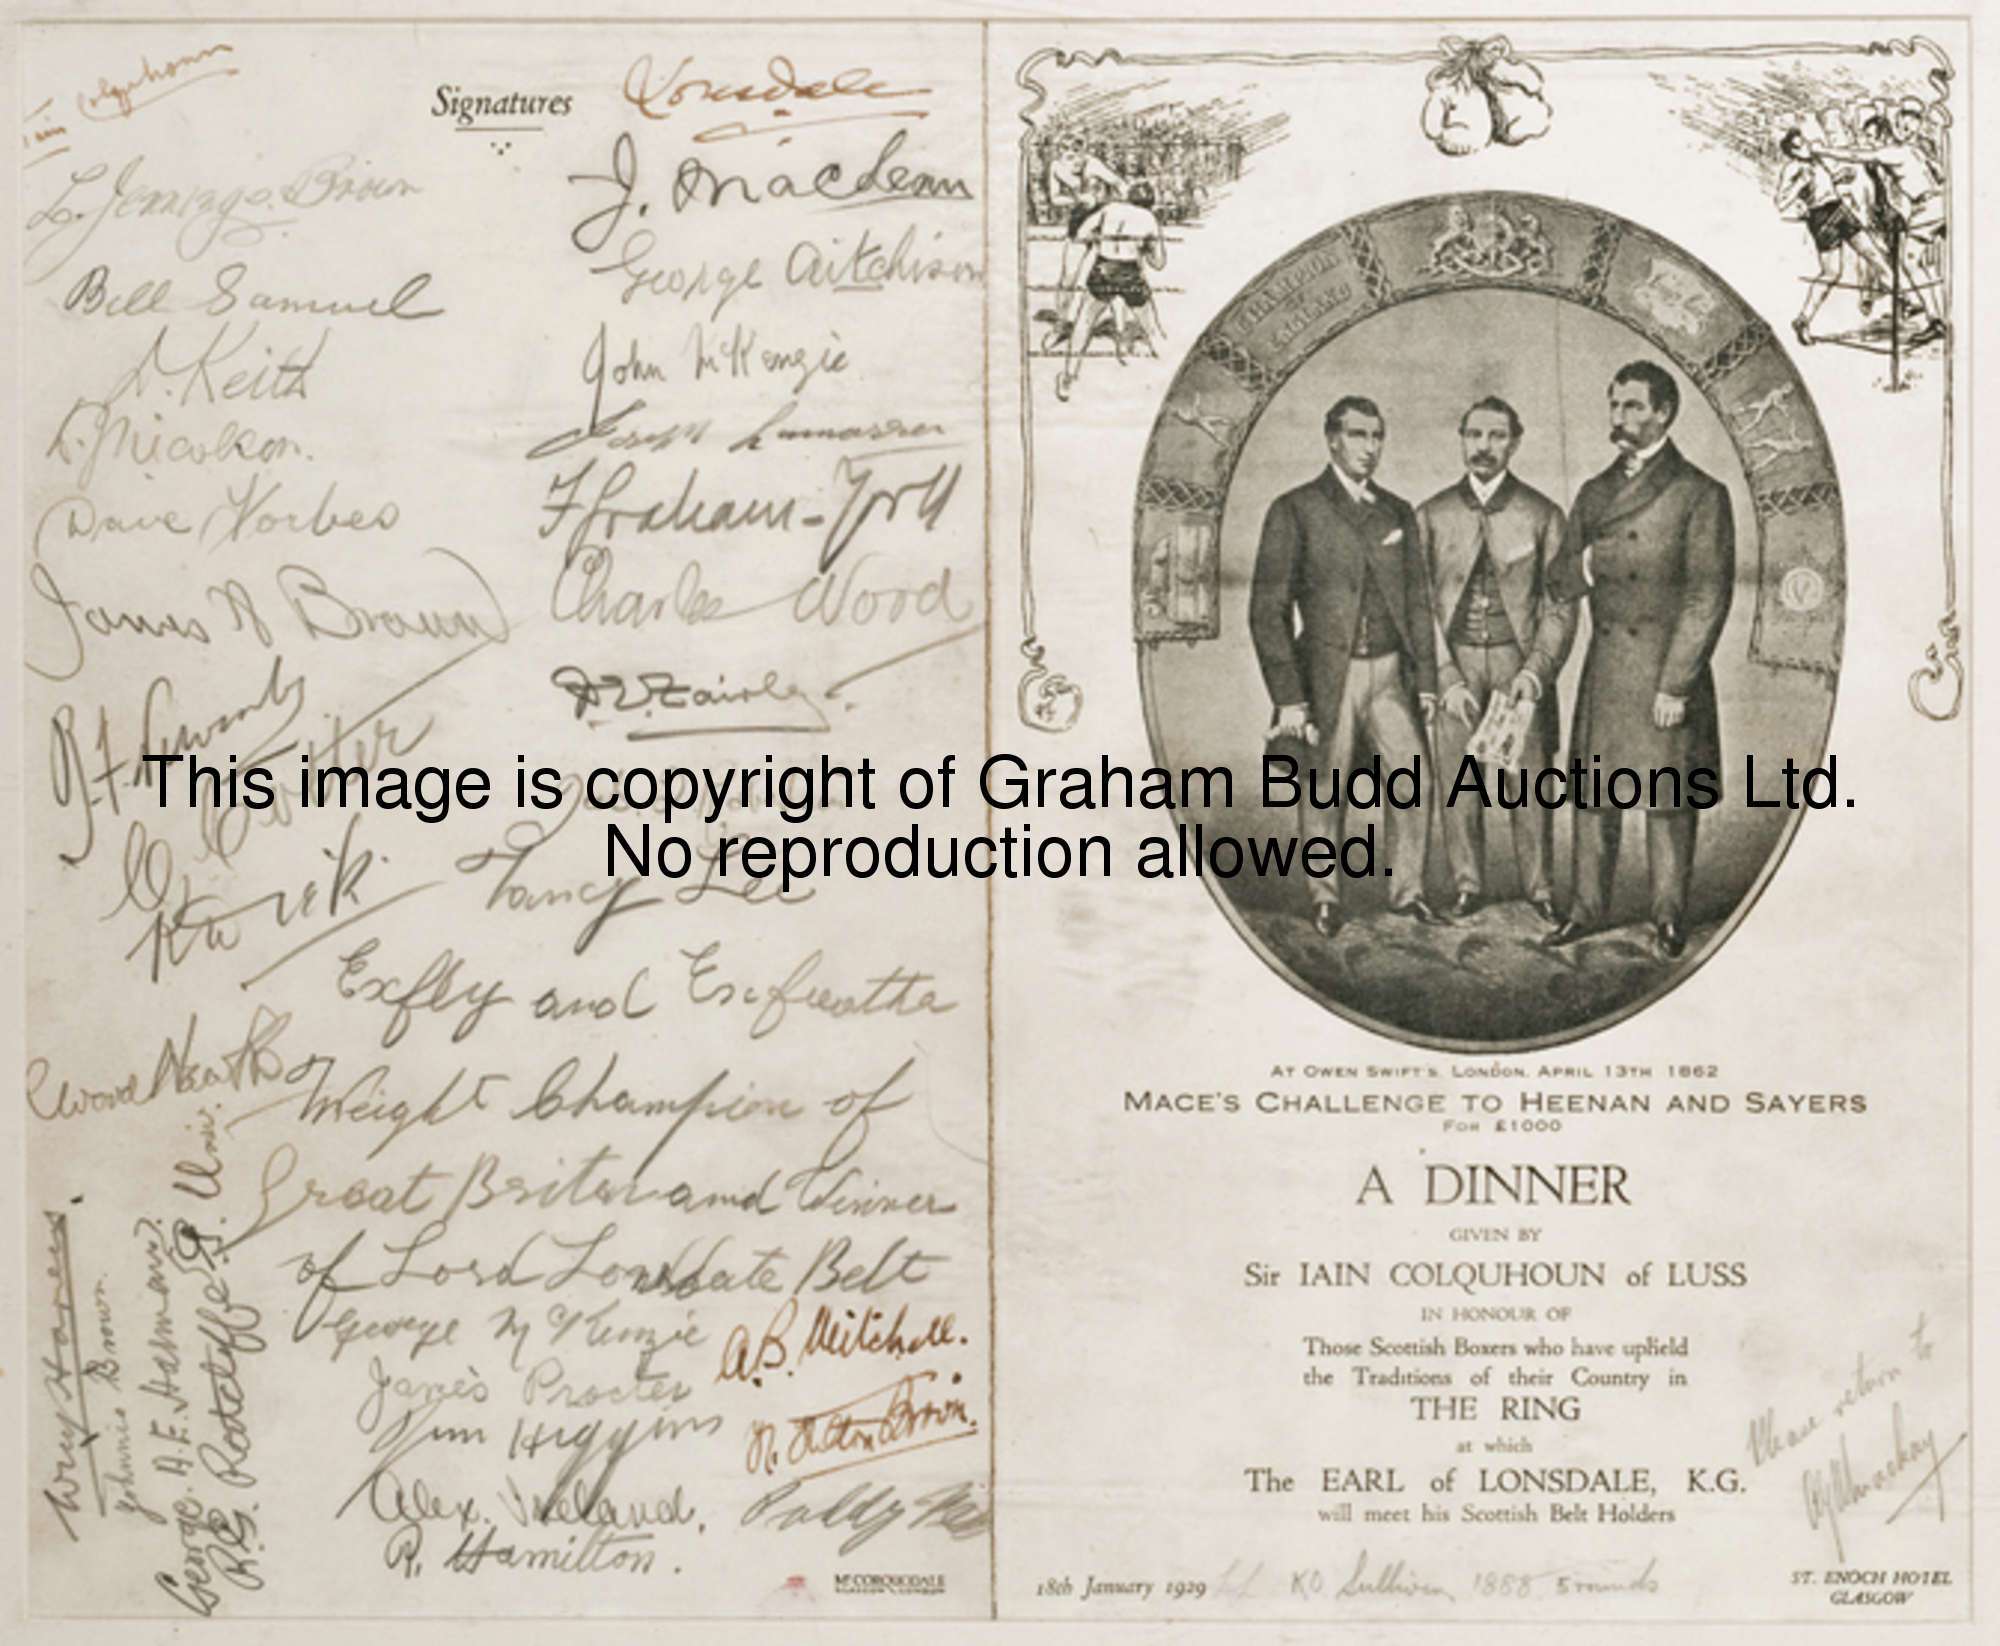 Iain Colquhoun
Signatures
Lonsdale
L. Jennings. Brown
J. Maclean
Bill Samuel
George Aitchison
D. Keith
John McKenzie
D. Nicolson.
Joseph
Dave Forbes
F Graham-
James N Brown
Charles Wood
R. F.
D. V. Fairley
This image is copyright of Graham Budd Auctions Ltd.
No reproduction allowed.
Tancy Lee
Exfly and Exfeatha
Weight Champion of
Great Briten and Winner
of Lord Lonsdale Belt
Heath
George McKenzie
A.B. Mitchell.
James Procter
Jim Higgins
Brown.
Alex. Ireland.
Paddy
R. Hamilton.
Johnnie Brown.
George. A. F.
R.G. Radclyffe
McCORQUODALE
GLASGOW LONDON
CHAMPION
OF
ENGLAND
AT OWEN SWIFT'S, LONDON, APRIL 13TH 1862
MACE'S CHALLENGE TO HEENAN AND SAYERS
FOR £1000
A DINNER
GIVEN BY
Sir IAIN COLQUHOUN of LUSS
IN HONOUR OF
Those Scottish Boxers who have upheld
the Traditions of their Country in
THE RING
at which
The EARL of LONSDALE, K.G.
will meet his Scottish Belt Holders
Please return to
18th January 1929
KO Sullivan 1888 5 rounds
ST. ENOCH HOTEL
GLASGOW